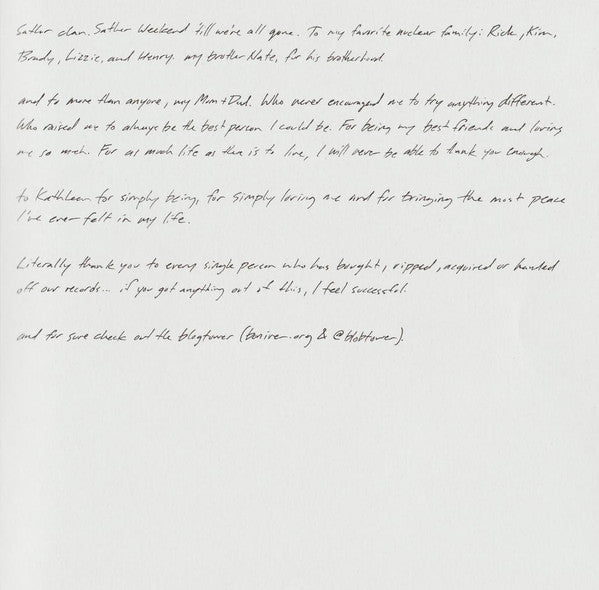 Sather clan. Sather Weekend 'till we're all gone. To my favorite nuclear family: Rick, Kim,
Brady, Lizzie, and Henry. my brother Nate, for his brotherhood.
and to more than anyone, my Mom + Dad. Who never encouraged me to try anything different.
Who raised me to always be the best person I could be. For being my best friends and loving
me so much. For as much life as there is to live, I will never be able to thank you enough.
to Kathleen for simply being, for simply loving me and for bringing the most peace
I've ever felt in my life.
Literally thank you to every single person who has bought, ripped, acquired or handed
off our records... if you got anything out of this, I feel successful.
and for sure check out the blogtower (boniver.org & @blobtower).